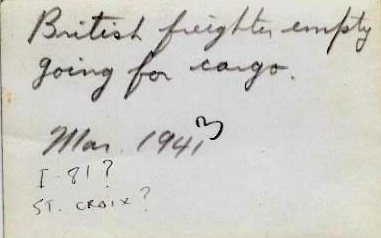 British freighter empty
going for cargo.
Mar. 1941
3
I-81?
ST. CROIX?